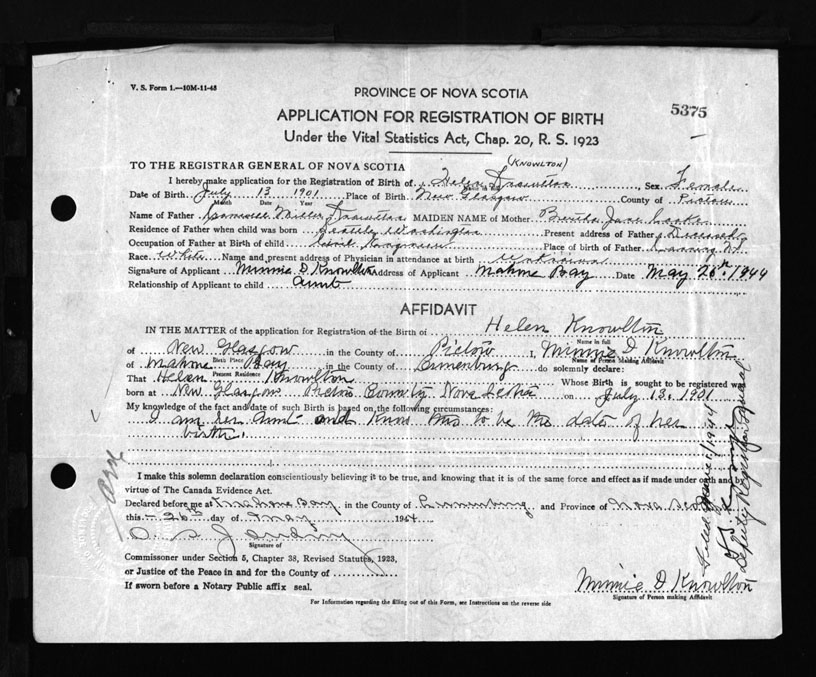 V. S. Form 1.—10M-11-43
PROVINCE OF NOVA SCOTIA
5375
APPLICATION FOR REGISTRATION OF BIRTH
Under the Vital Statistics Act, Chap. 20, R. S. 1923
(KNOWLTON)
TO THE REGISTRAR GENERAL OF NOVA SCOTIA
I hereby make application for the Registration of Birth of Helen Knowlton, Sex Female
Date of Birth July 13 1901 Place of Birth New Glasgow County of Pictou
Month Date Year
Name of Father Knowlton MAIDEN NAME of Mother Bertha Jane
Residence of Father when child was born Seattle Washington Present address of Father Deceased
Occupation of Father at Birth of child Civil Place of birth of Father
Race White Name and present address of Physician in attendance at birth
Signature of Applicant Minnie D Knowlton Address of Applicant Mahone Bay Date May 26th 1944
Relationship of Applicant to child aunt
AFFIDAVIT
IN THE MATTER of the application for Registration of the Birth of Helen Knowlton
Name in full
of New Glasgow in the County of Pictou I, Minnie D Knowlton
Birth Place Name of Person Making Affidavit
of Mahone Bay in the County of Lunenburg do solemnly declare:
Present Residence
That Helen Knowlton Whose Birth is sought to be registered was
born at New Glasgow Pictou County Nova Scotia on July 13, 1901
My knowledge of the fact and date of such Birth is based on the following circumstances:
I am her Aunt and know this to be the date of her
birth.
I make this solemn declaration conscientiously believing it to be true, and knowing that it is of the same force and effect as if made under oath and by
virtue of The Canada Evidence Act.
Declared before me at Mahone Bay, in the County of Lunenburg, and Province of Nova Scotia
this 26th day of May 1944
Signature of
Commissioner under Section 5, Chapter 38, Revised Statutes, 1923,
or Justice of the Peace in and for the County of
If sworn before a Notary Public affix seal.
Minnie D Knowlton
Signature of Person making Affidavit
For Information regarding the filling out of this Form, see Instructions on the reverse side
Filed 1944
Deputy Registrar General